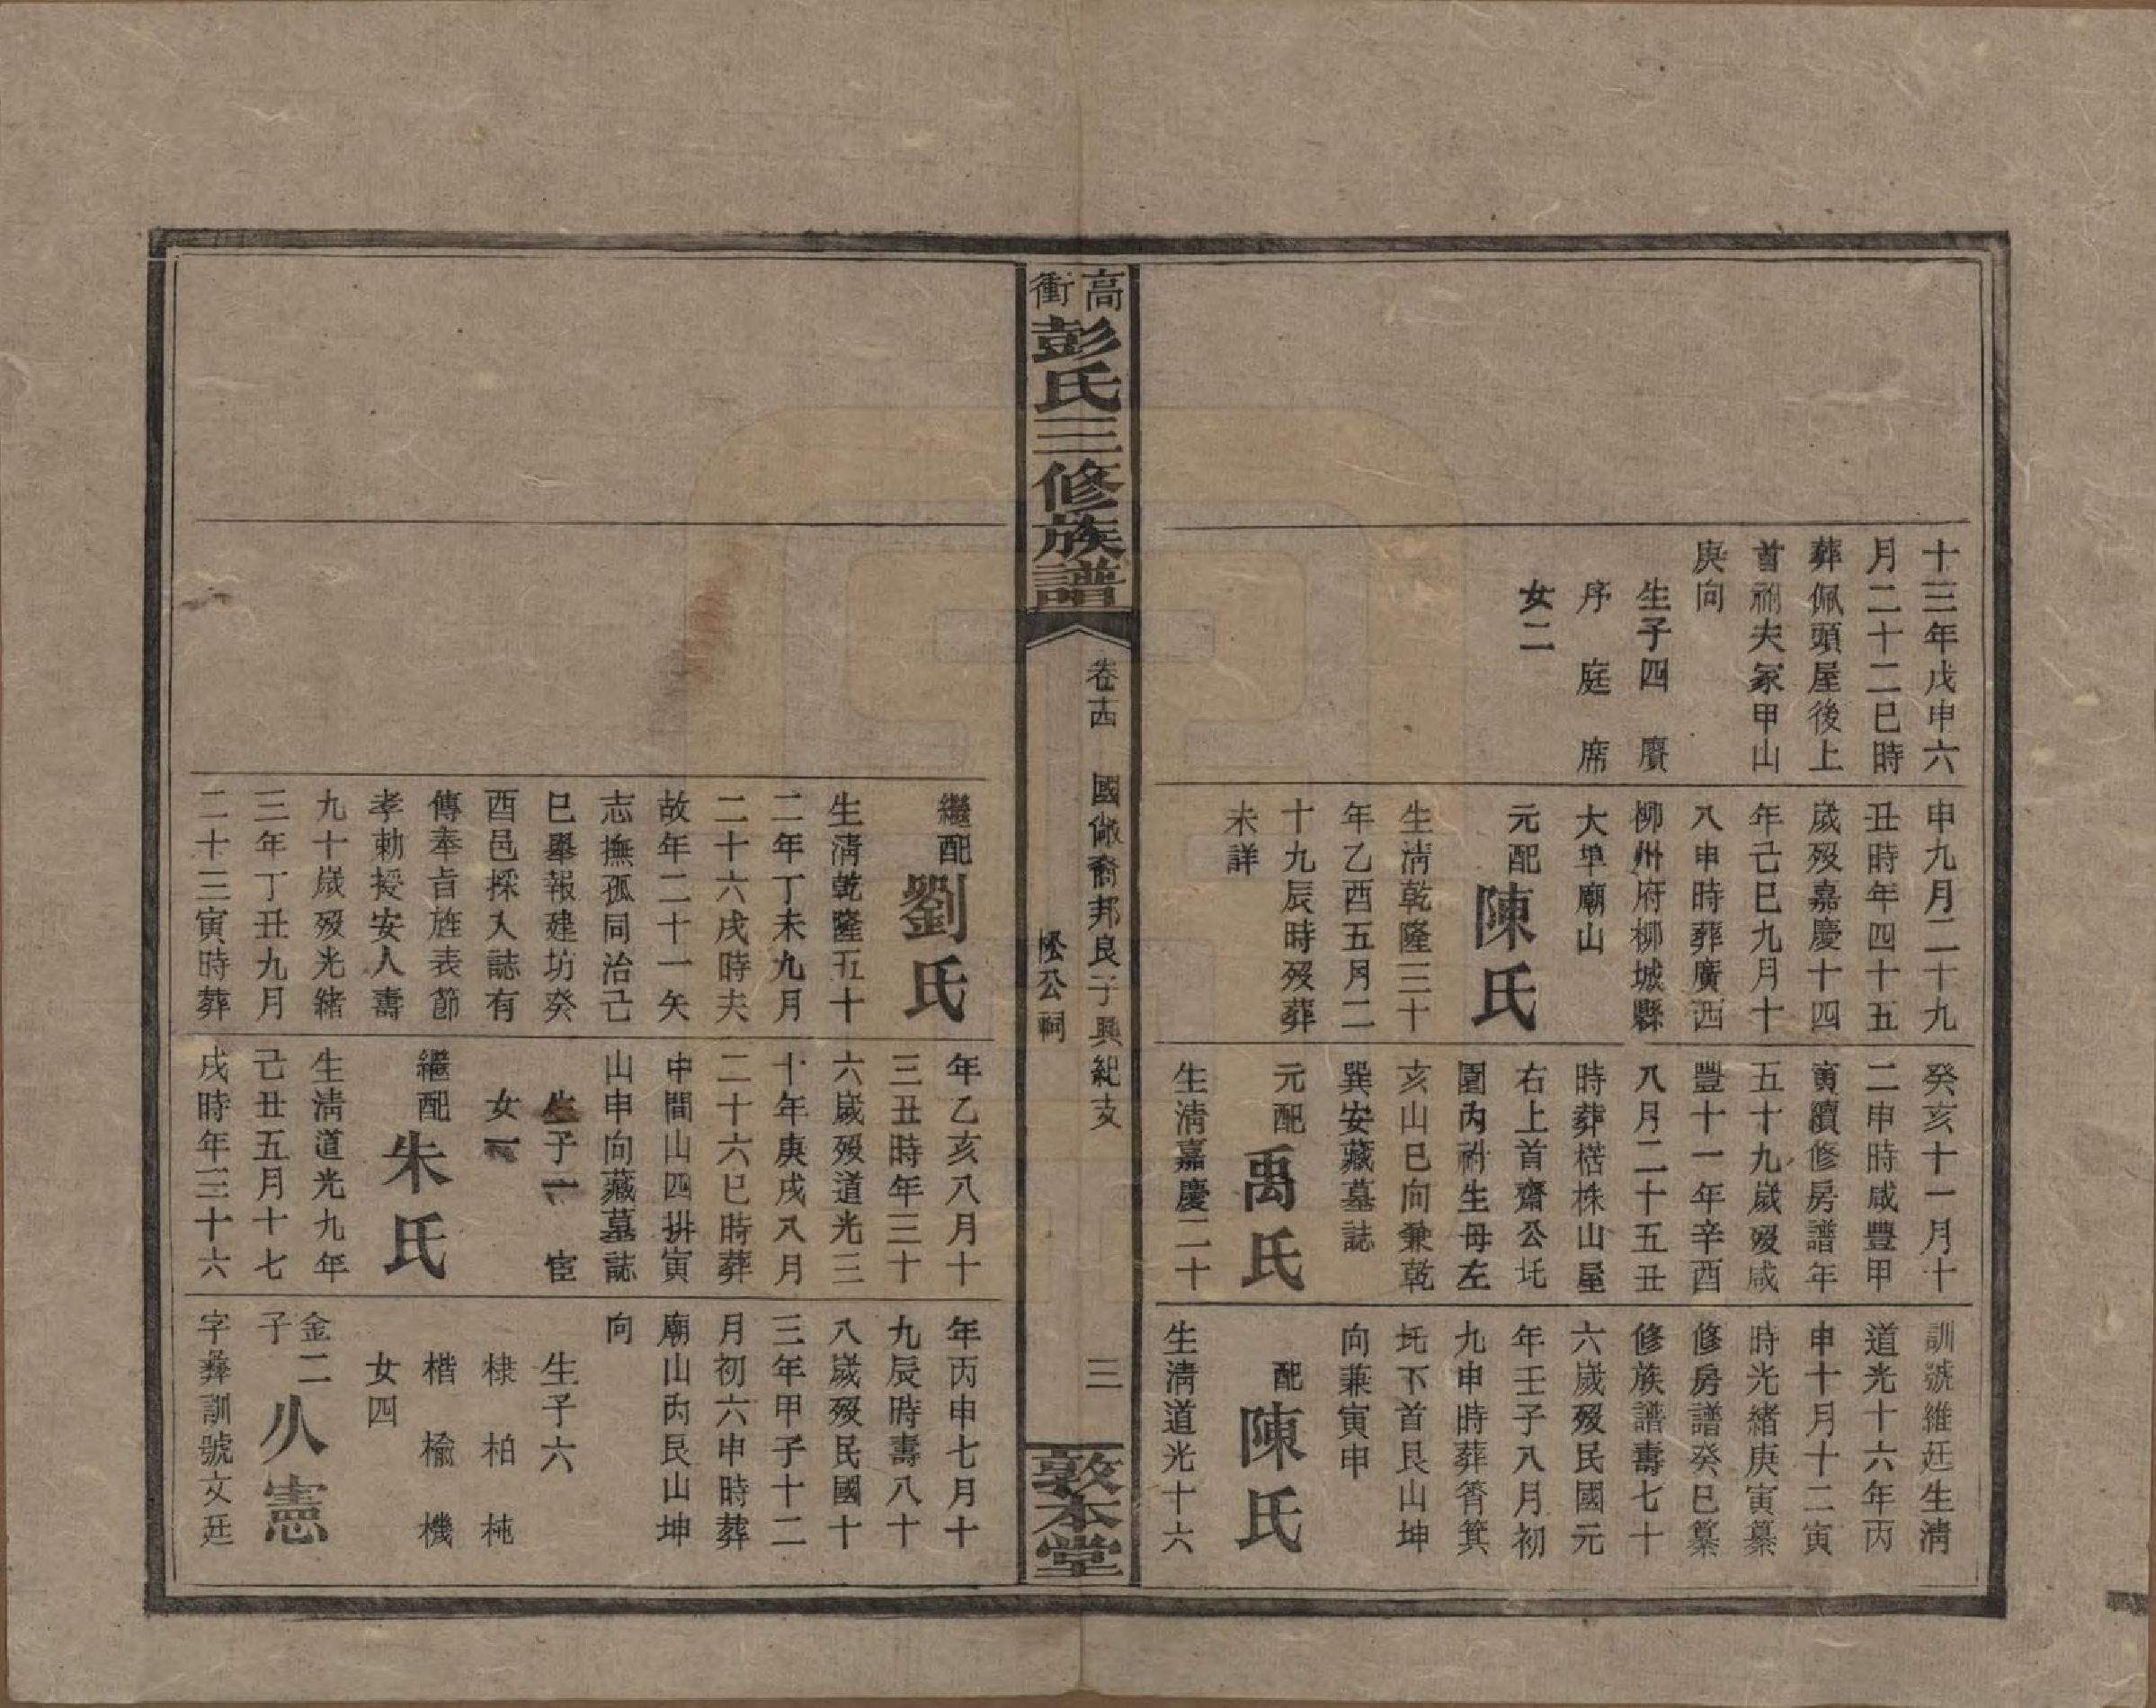 十三年戊申六
月二十二巳時
葬佩頭屋後上
首祔夫冢甲山
庚向
生子四　賡
序　庭　席
女二
申九月二十九
丑時年四十五
歲歿嘉慶十四
年己巳九月十
八申時葬廣西
柳州府柳城縣
大埠廟山
元配陳氏
生淸乾隆三十
年乙酉五月二
十九辰時歿葬
未詳
癸亥十一月十
二申時咸豐甲
寅續修房譜年
五十九歲歿咸
豐十一年辛酉
八月二十五丑
時葬楛株山屋
右上首齋公圫
圍內祔生母左
亥山巳向兼乾
巽安藏墓誌
元配禹氏
生淸嘉慶二十
訓號維廷生淸
道光十六年丙
申十月十二寅
時光緒庚寅纂
修房譜癸巳纂
修族譜壽七十
六歲歿民國元
年壬子八月初
九申時葬筲箕
圫下首艮山坤
向兼寅申
配陳氏
生淸道光十六
高衝彭氏三修族譜
卷十四　國俶裔邦良子興紀支
松公祠
三
敦本堂
繼配劉氏
生淸乾隆五十
二年丁未九月
二十六戌時夫
故年二十一矢
志撫孤同治己
巳舉報建坊癸
酉邑採入誌有
傳奉旨旌表節
孝勅授安人壽
九十歲歿光緒
三年丁丑九月
二十三寅時葬
年乙亥八月十
三丑時年三十
六歲歿道光三
十年庚戌八月
二十六巳時葬
中間山四拼寅
山申向藏墓誌
生子一　宦
女一
繼配朱氏
生淸道光九年
己丑五月十七
戌時年三十六
年丙申七月十
九辰時壽八十
八歲歿民國十
三年甲子十二
月初六申時葬
廟山內艮山坤
向
生子六
棣　柏　杶
楷　楡　機
女四
金二子　八憲
字彝訓號文廷